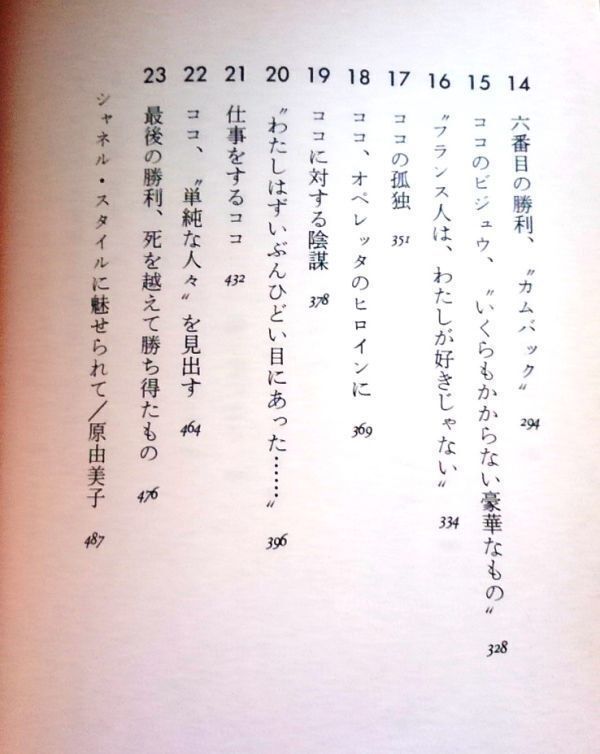 14 六番目の勝利、〝カムバック〟 294
15 ココのビジュウ、〝いくらもかからない豪華なもの〟 328
16 〝フランス人は、わたしが好きじゃない〟 334
17 ココの孤独 351
18 ココ、オペレッタのヒロインに 369
19 ココに対する陰謀 378
20 〝わたしはずいぶんひどい目にあった……〟 396
21 仕事をするココ 432
22 ココ、〝単純な人々〟を見出す 464
23 最後の勝利、死を越えて勝ち得たもの 476
シャネル・スタイルに魅せられて/原由美子 487